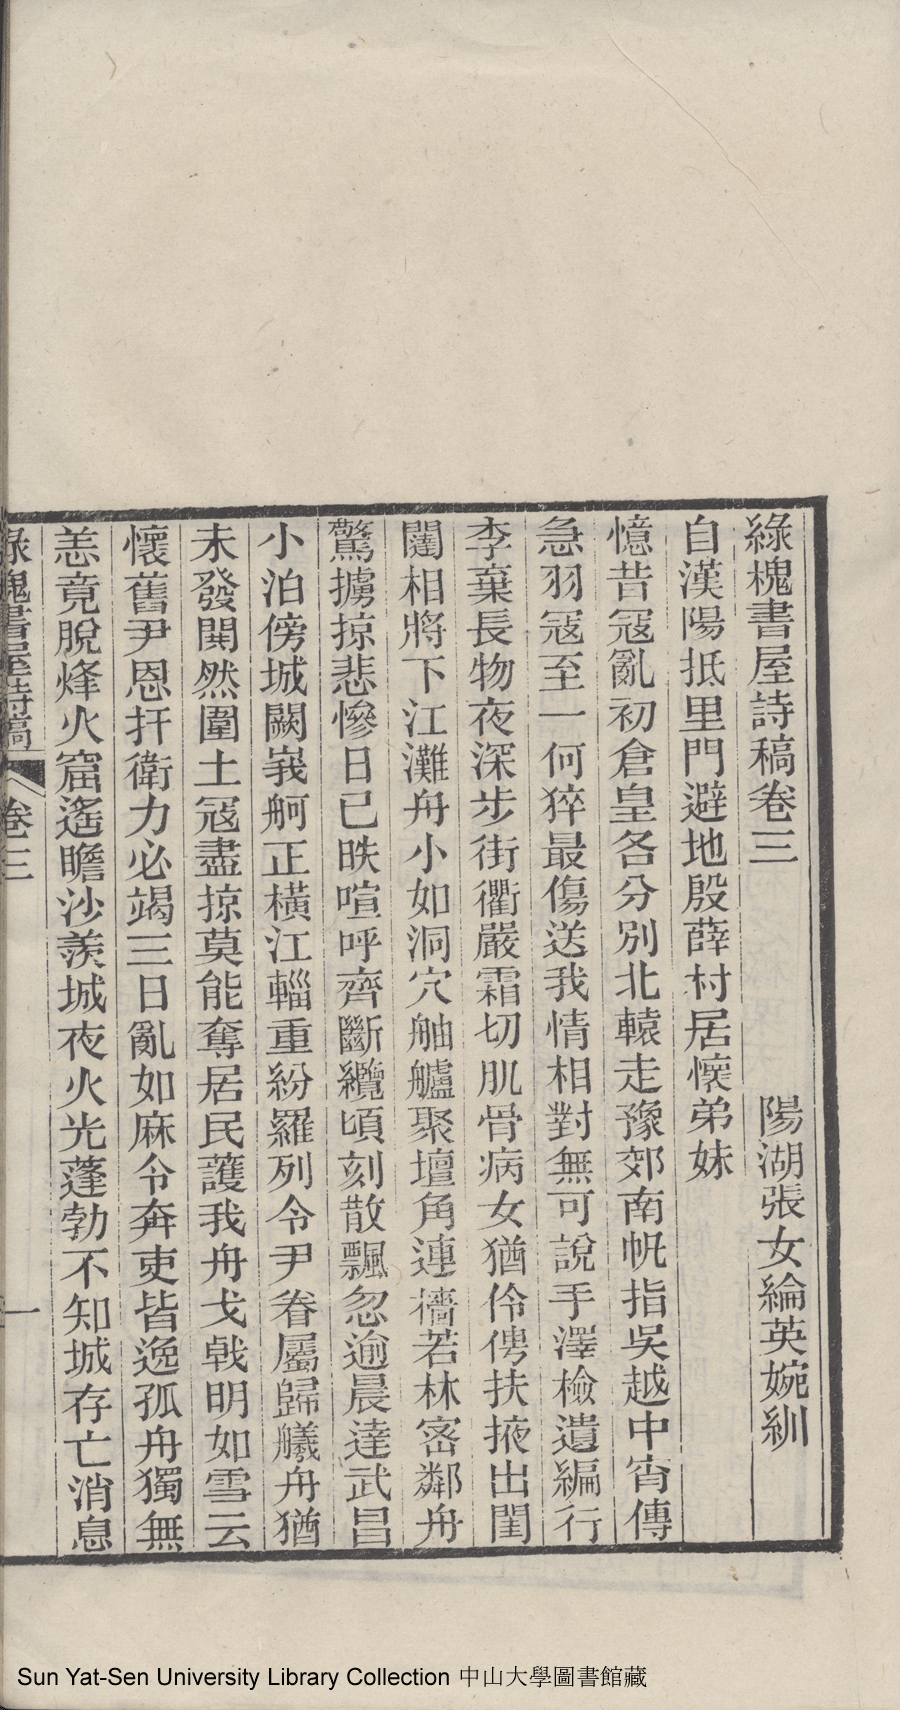 綠槐書屋詩稿卷三 陽湖張女綸英婉紃
自漢陽抵里門避地殷薛村居懷弟妹
憶昔冦亂初倉皇各分別北轅走豫郊南帆指吳越中宵傳
急羽冦至一何猝最傷送我情相對無可說手澤檢遺編行
李棄長物夜深步街衢嚴霜切肌骨病女猶伶俜扶掖出閨
闥相將下江灘舟小如洞穴舳艫聚壇角連檣若林密鄰舟
驚擄掠悲慘日已昳喧呼齊斷纜頃刻散飄忽逾晨達武昌
小泊傍城闕峩舸正橫江輜重紛羅列令尹眷屬歸艤舟猶
未發閧然圍土冦盡掠莫能奪居民護我舟戈戟明如雪云
懷舊尹恩扞衛力必竭三日亂如麻令奔吏皆逸孤舟獨無
恙竟脫烽火窟遙瞻沙羨城夜火光蓬勃不知城存亡消息
綠槐書屋詩稿 卷三 一
Sun Yat-Sen University Library Collection 中山大學圖書館藏